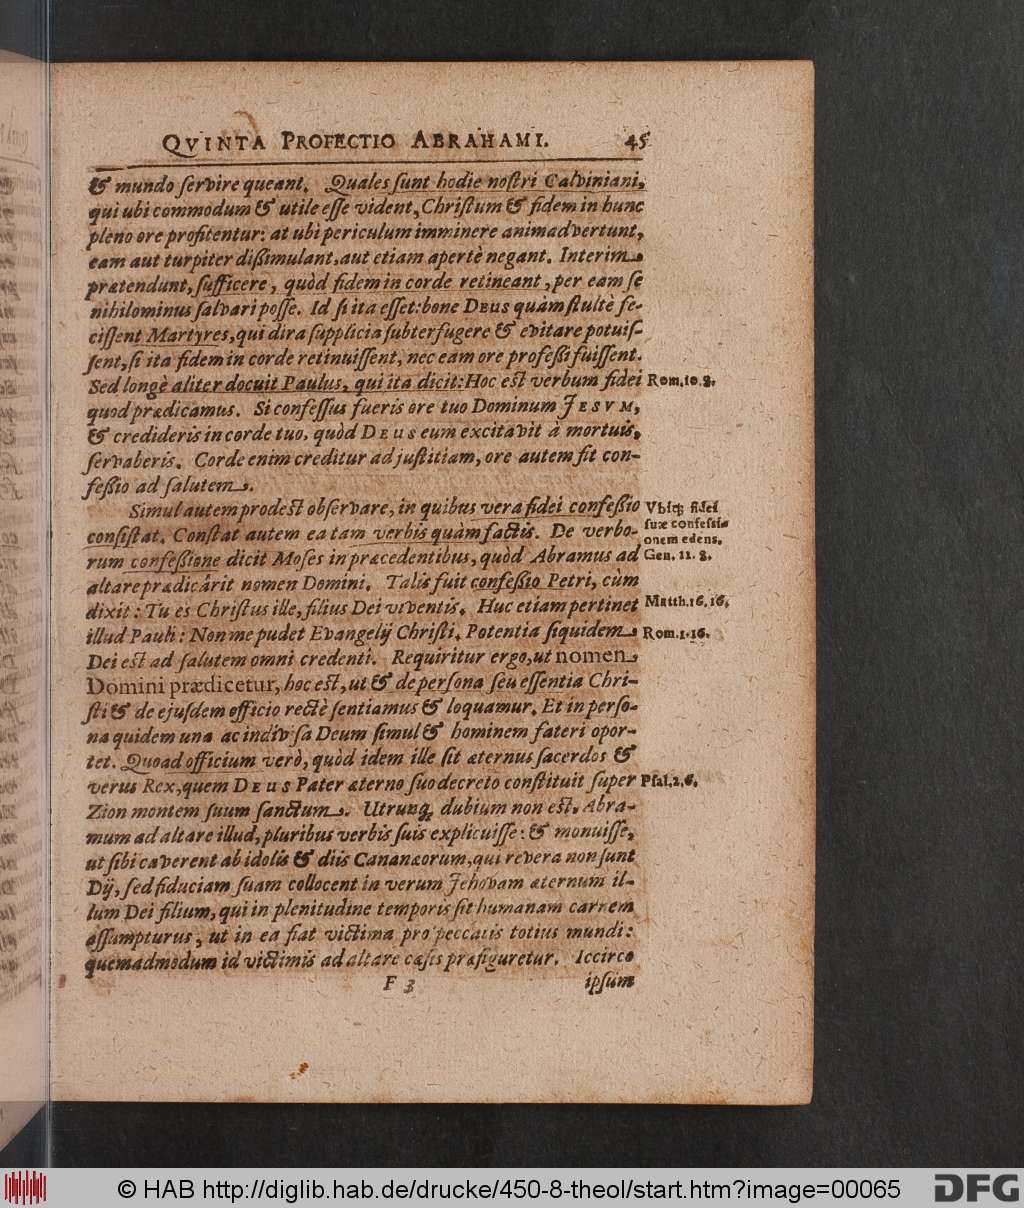 QVINTA PROFECTIO ABRAHAMI. 45
& mundo servire queant. Quales sunt hodie nostri Calviniani,
qui ubi commodum & utile esse vident, Christum & fidem in hunc
pleno ore profitentur: at ubi periculum imminere animadvertunt,
eam aut turpiter dißimulant, aut etiam apertè negant. Interim
prætendunt, sufficere, quòd fidem in corde retineant, per eam se
nihilominus salvari posse. Id si ita esset: bone DEUS quàm stultè fe-
cissent Martyres, qui dira supplicia subterfugere & evitare potuis-
sent, si ita fidem in corde retinuissent, nec eam ore profeßi fuissent.
Sed longè aliter docuit Paulus, qui ita dicit: Hoc est verbum fidei
Rom. 10. 8.
quod prædicamus. Si confessus fueris ore tuo Dominum JESVM,
& credideris in corde tuo, quòd DEUS eum excitavit à mortuis,
servaberis. Corde enim creditur ad justitiam, ore autem fit con-
feßio ad salutem.
Simul autem prodest observare, in quibus vera fidei confeßio
Vbiq; fidei
consistat. Constat autem ea tam verbis quàm factis. De verbo-
suæ confessi-
onem edens.
rum confeßione dicit Moses in præcedentibus, quòd Abramus ad
Gen. 12. 8.
altare prædicârit nomen Domini. Talis fuit confeßio Petri, cùm
dixit: Tu es Christus ille, filius Dei viventis. Huc etiam pertinet
Matth. 16. 16.
illud Pauli: Non me pudet Evangelij Christi. Potentia siquidem
Rom. 1. 16.
Dei est ad salutem omni credenti. Requiritur ergo, ut nomen
Domini prædicetur, hoc est, ut & de persona seu essentia Chri-
sti & de ejusdem officio rectè sentiamus & loquamur. Et in perso-
na quidem una ac indivisa Deum simul & hominem fateri opor-
tet. Quoad officium verò, quòd idem ille sit æternus sacerdos &
verus Rex, quem DEUS Pater æterno suo decreto constituit super
Psal. 2. 6.
Zion montem suum sanctum. Utrunq; dubium non est, Abra-
mum ad altare illud, pluribus verbis suis explicuisse: & monuisse,
ut sibi caverent ab idolis & diis Cananæorum, qui revera non sunt
Dij, sed fiduciam suam collocent in verum Jehovam æternum il-
lum Dei filium, qui in plenitudine temporis sit humanam carnem
assumpturus, ut in ea fiat victima pro peccatis totius mundi:
quemadmodum id victimis ad altare cæsis præfiguretur. Iccirco
F 3 ipsum
© HAB http://diglib.hab.de/drucke/450-8-theol/start.htm?image=00065
DFG